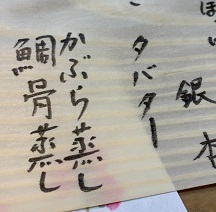 ほ い 銀杏
タバター
かぶら蒸し
鯛骨蒸し